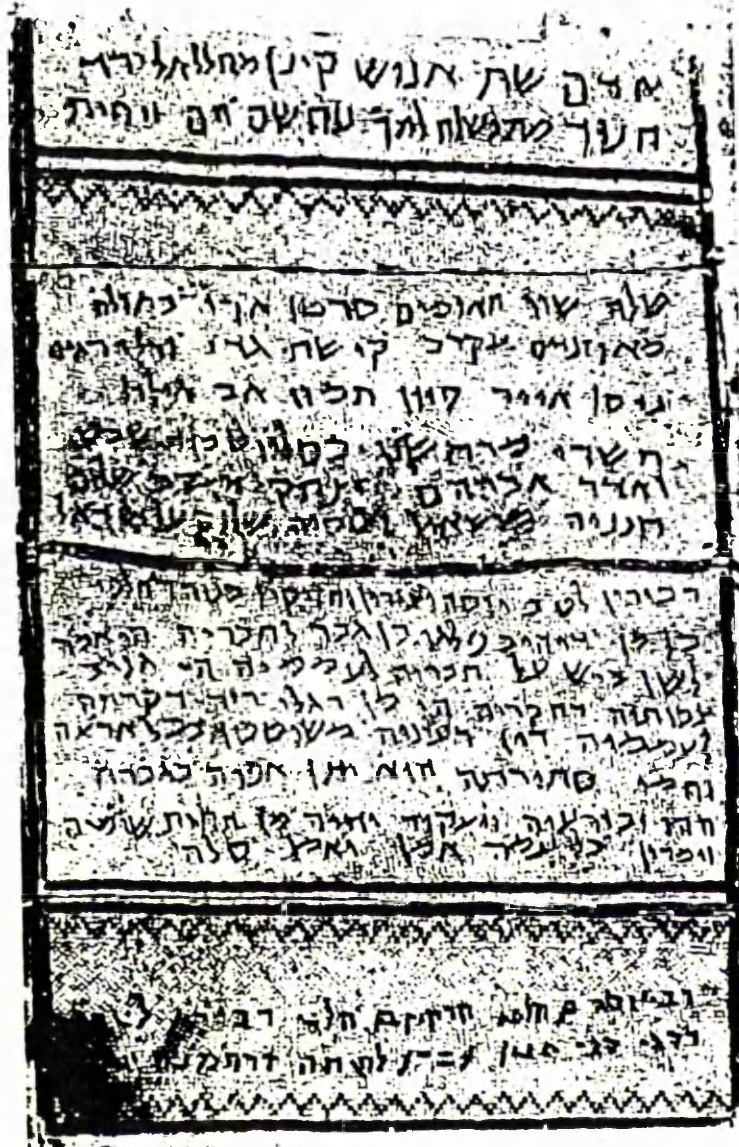 אדם שת אנוש קינן מהללאל ירד
חנוך מתושלח למך נח שם חם ויפת
טלה שור תאומים סרטן ארי בתולה
מאוזניים עקרב קישת גדי ודלי דגים
ניסן אייר סיון תמוז אב אילול
תשרי מרחשון כסליו טבית שבט
ואדר אברהם יצחק יעקב שלום
חנניה מישאיל ועזריה שלום על ישראל
דכירין לטב יוסה ועזרון וחזיקיו בנוה דחלפי
כל מן דיהיב פלגו בן גבר לחבריה הי אמר
לשן ביש על חבריה לעממיה הי גניב
צבותיה דחבריה הי מן דגלי רזה דקרתה
לעממיה דין דעינוה משוטטן בכל ארעה
וחמי סתירתה הוא יתן אפוה בגברה
ההו ובזרעיה ויעקור יתיה מן תחות שומיה
וימרון כל עמה אמן ואמן סלה
רבי יוסה בן חלפי חזקיו בן חלפי
דסגי סגי הנון לשמה דרחמנה